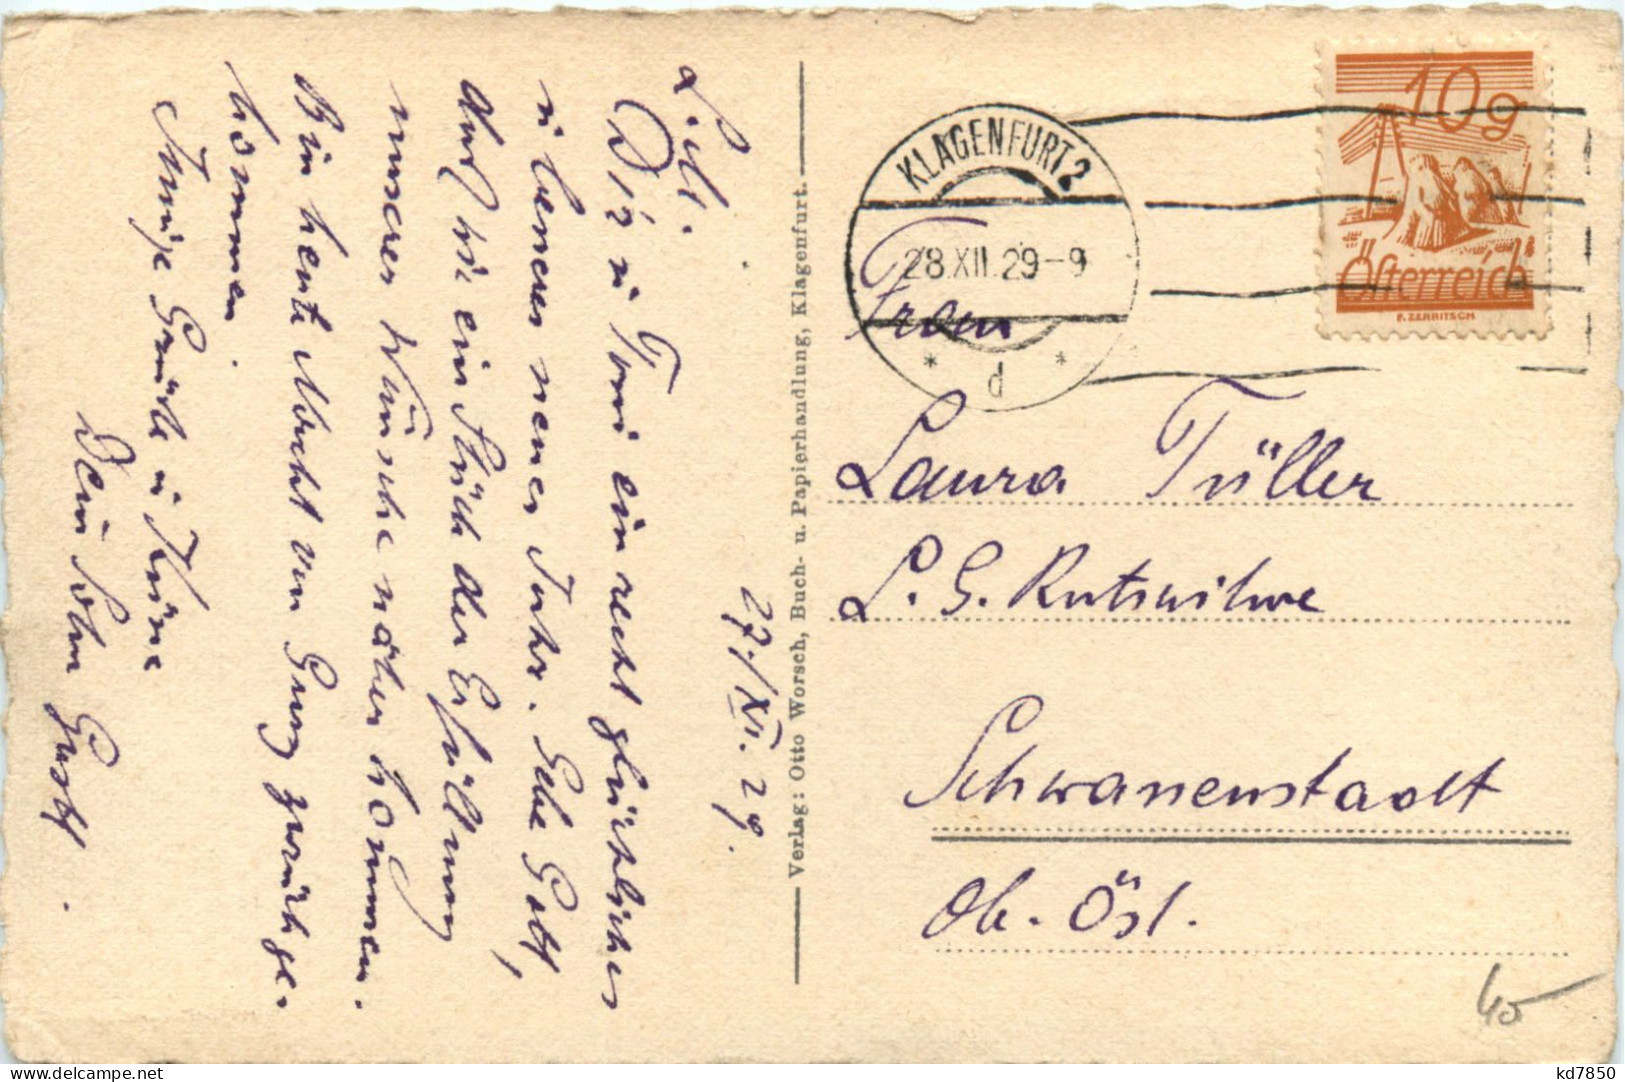 27./XII. 29.
Lill.
Dir u Toni ein recht glückliches
u besseres neues Jahr. Gebe Gott,
daß wir ein Stück der Erfüllung
unserer Wünsche näher kommen.
Bin heute Nacht von Graz zurückge-
kommen.
Innige Grüße u Küsse
Dein Sohn Gustl.
Verlag: Otto Worsch, Buch- u. Papierhandlung, Klagenfurt.
KLAGENFURT 2
28.XII.29-9
* d *
10g
Österreich
F. ZERRITSCH
Frau
Laura Tüller
L. G. Ratswitwe
Schwanenstadt
Ob. Öst.
kd7850